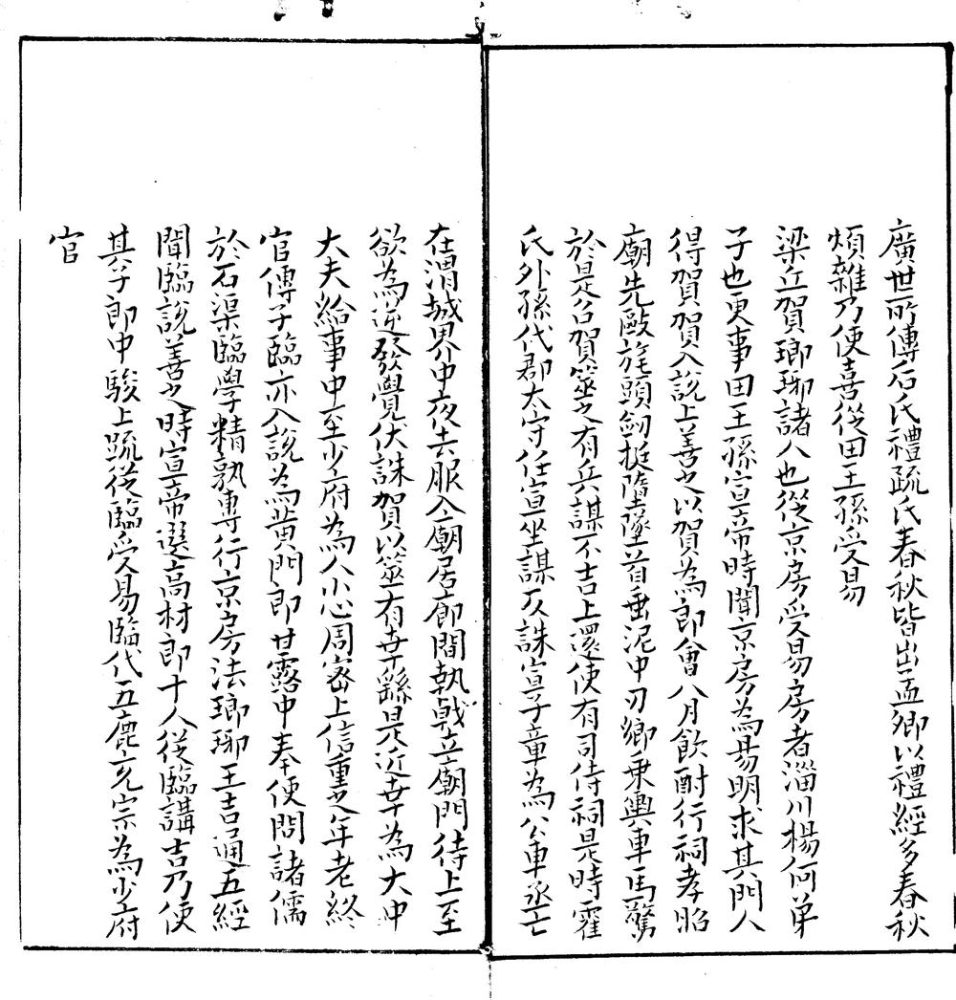 廣世所傳后氏禮疏氏春秋皆出孟卿以禮經多春秋
煩雜乃使喜從田王孫受易
梁丘賀瑯琊諸人也從京房受易房者淄川楊何弟
子也更事田王孫宣帝時聞京房為易明求其門人
得賀賀入說上善之以賀為郎會八月飲酎行祠孝昭
廟先敺旄頭劒挺墮墜首垂泥中刃鄉乗輿車馬驚
於是召賀筮之有兵謀不吉上還使有司侍祠是時霍
氏外孫代郡太守任宣坐謀反誅宣子章為公車丞亡
在渭城界中夜去服入廟居郎間執戟立廟門待上至
欲為逆發覺伏誅賀以筮有幸繇是近幸為大中
大夫給事中至少府為人小心周宻上信重之年老終
官傳子臨亦入說為黄門郎甘露中奉使問諸儒
於石渠臨學精孰専行京房法瑯琊王吉通五經
聞臨說善之時宣帝選高材郎十人從臨講吉乃使
其子郎中駿上疏從臨受易臨代五鹿充宗為少府
官